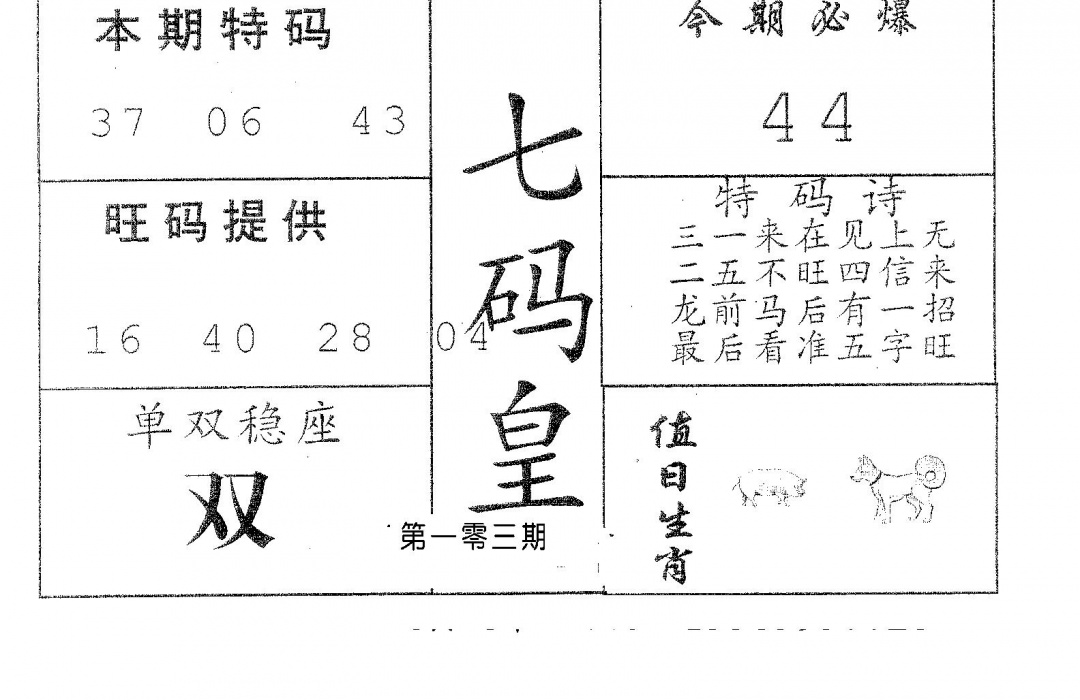 本期特码
37 06 43
旺码提供
16 40 28 04
单双稳座
双
七码皇
第一零三期
今期必爆
44
特码诗
三一来在见上无
二五不旺四信来
龙前马后有一招
最后看准五字旺
值日生肖